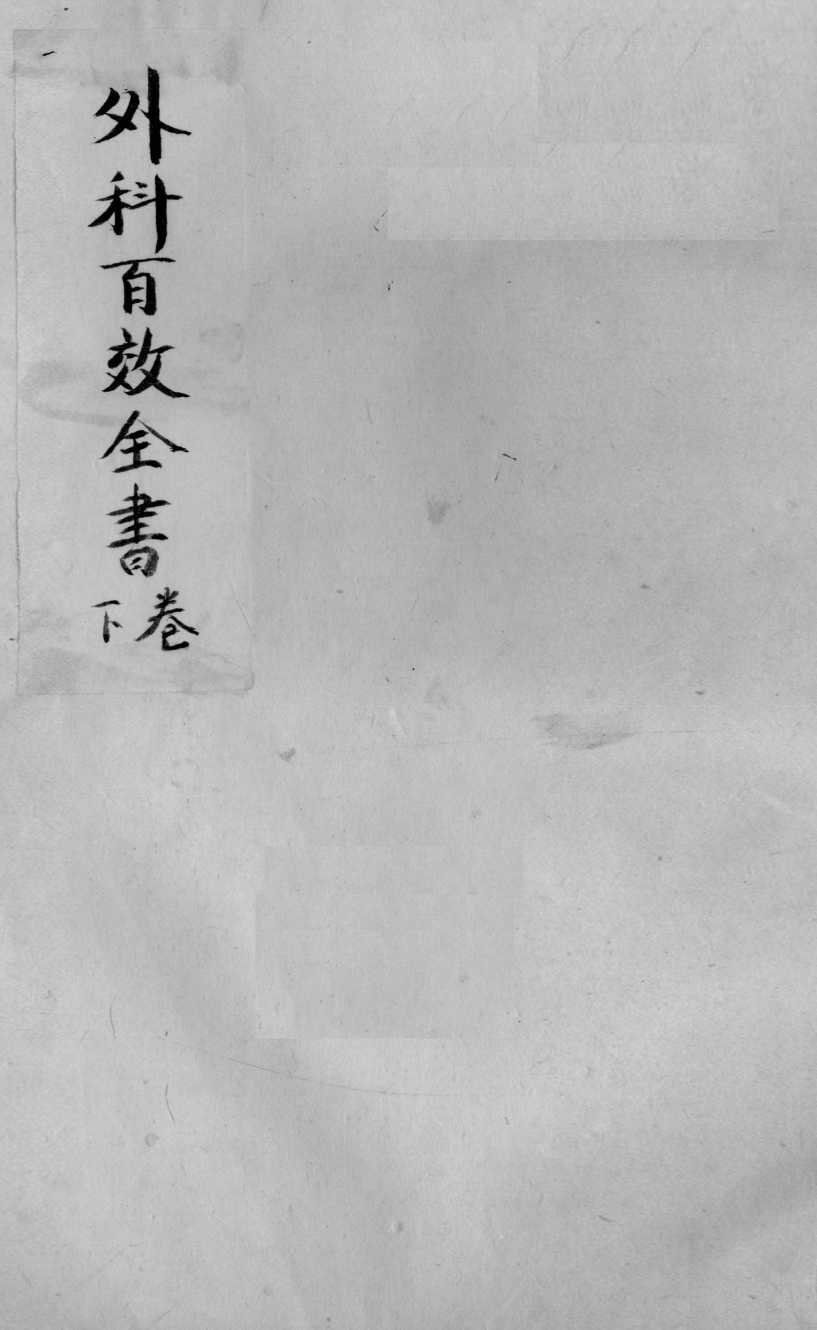 外科百效全書
卷下